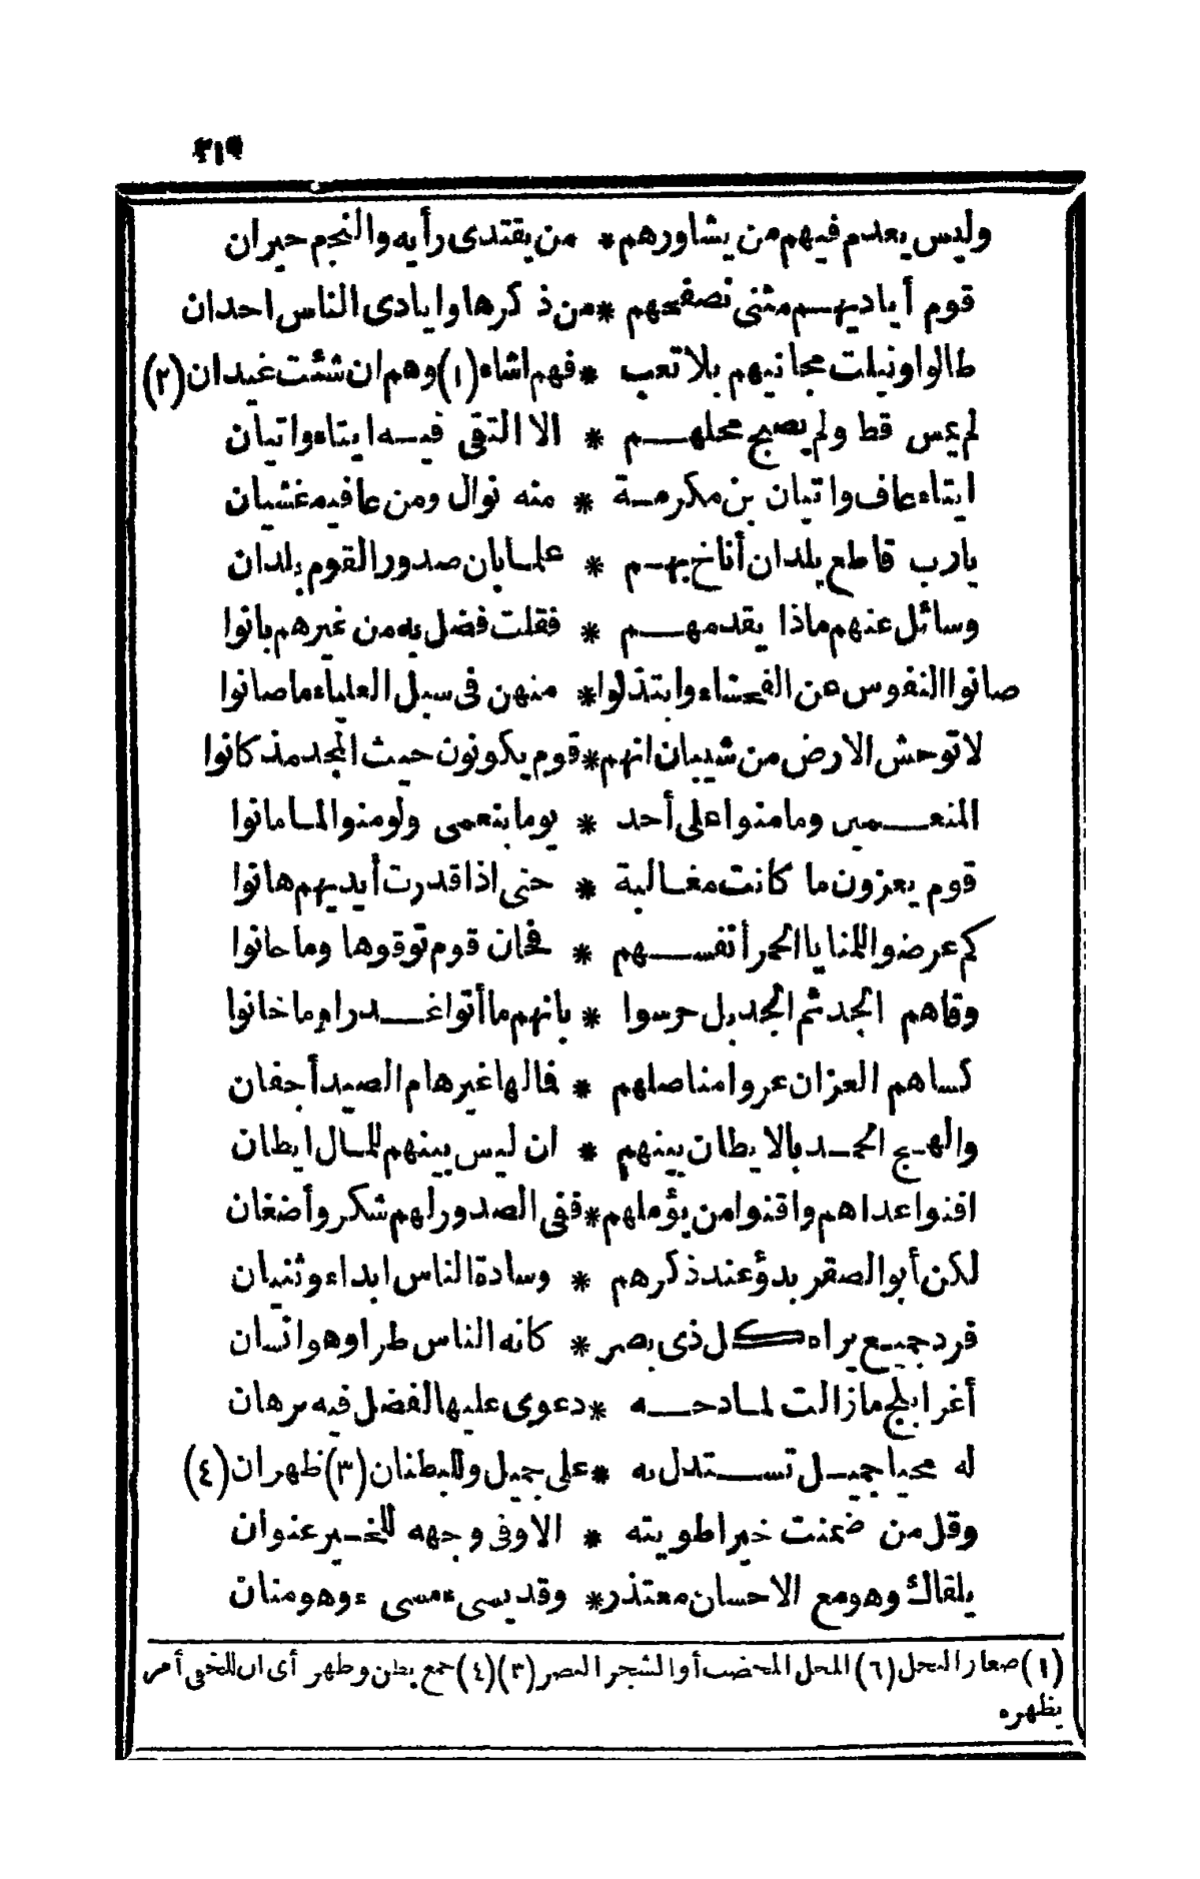 ٣١٩
وليس يعدم فيهم من يشاورهم * من يقتدى رأيه والنجم حيران
قوم أياديهم مثنى نصفحهم * من ذكرها وايادى الناس احدان
طالوا ونيلت مجانيهم بلا تعب * فهم اشاه (١) وهم ان شئت غيدان (٢)
لم يمس قط ولم يصبح محلهم * الا التقى فيه ايتاء واتيان
ايتاء عاف واتيان بن مكرمة * منه نوال ومن عافيه غشيان
يارب قاطع بلدان أناخ بهم * علما بان صدور القوم بلدان
وسائل عنهم ماذا يقدمهم * فقلت فضل به من غيرهم بانوا
صانوا النفوس عن الفحشاء وابتذلوا * منهن فى سبل العلياء ما صانوا
لا توحش الارض من شيبان انهم * قوم يكونون حيث المجد مذ كانوا
المنعمين وما منوا على أحد * يوما بنعمى ولو منوا لما مانوا
قوم يعزون ما كانت مغالبة * حتى اذا قدرت أيديهم هانوا
كم عرضوا للمنايا الحمر أنفسهم * فحان قوم توقوها وما حانوا
وقاهم الجد ثم الجد بل حرسوا * بانهم ما أتوا غدرا وما خانوا
كساهم العز ان عروا مناصلهم * فالها غير هام الصيد أجفان
والهج الحمد بالايطان بينهم * ان ليس بينهم للمال ايطان
افنوا عداهم واقنوا من يؤملهم * ففى الصدور لهم شكر وأضغان
لكن أبو الصقر بدؤ عند ذكرهم * وسادة الناس ابداء وثنيان
فرد جميع يراه كل ذى بصر * كانه الناس طرا وهو انسان
أغر ابلج ما زالت لمادحه * دعوى عليها لفضل فيه برهان
له محيا جميل تستدل به * على جميل وللبطنان (٣) ظهران (٤)
وقل من ضمنت خيرا طويته * الا وفى وجهه للخير عنوان
يلقاك وهو مع الاحسان معتذر * وقد يسىء مسىء وهو منان
(١) صغار النخل (٢) النخل أو الشجر (٣) (٤) جمع بطن وظهر أى ان للخفى أمر
يظهره